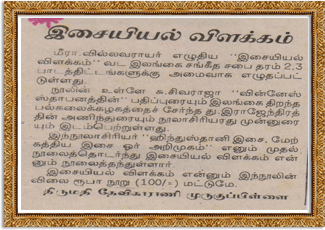 இசையியல் விளக்கம்
மீரா வில்லவராயர் எழுதிய "இசையியல்
விளக்கம்" வட இலங்கை சங்கீத சபை தரம் 2,3
பாடத்திட்டங்களுக்கு அமைவாக எழுதப்பட்
டுள்ளது.
நூலின் உள்ளே சு.சிவராஜா "வின்னேஸ்
ஸ்தாபனத்தின்" பதிப்புரையும் இலங்கை திறந்த
பல்கலைக்கழகத்தைச் சேர்ந்த து.இராஜேந்திரத்
தின் அணிந்துரையும் நூலாசிரியரது முன்னுரை
யும் இடம்பெற்றுள்ளது.
இந்நூலாசிரியர் "ஹிந்துஸ்தானி இசை, மேற்
கத்திய இசை ஓர் அறிமுகம்" எனும் முதல்
நூலைத்தொடர்ந்து இசையியல் விளக்கம் என்
னும் நூலைத்தந்துள்ளார்.
இசையியல் விளக்கம் என்னும் இந்நூலின்
விலை ரூபா நூறு (100/-) மட்டுமே.
திருமதி தேவிகாராணி முருகுப்பிள்ளை